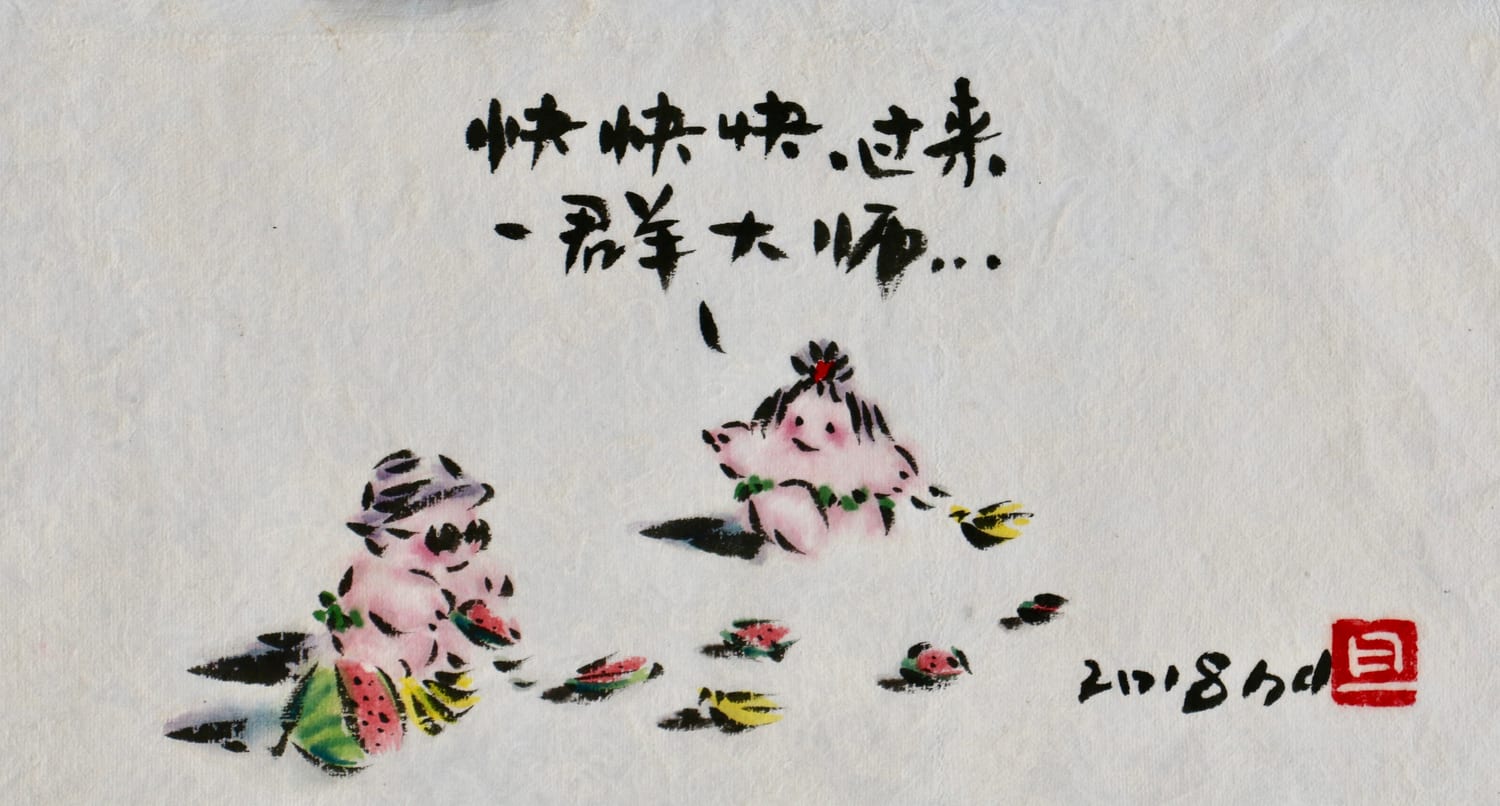 快快快.过来
一群大师...
2018
旦